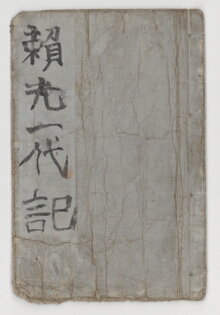 賴光一代記